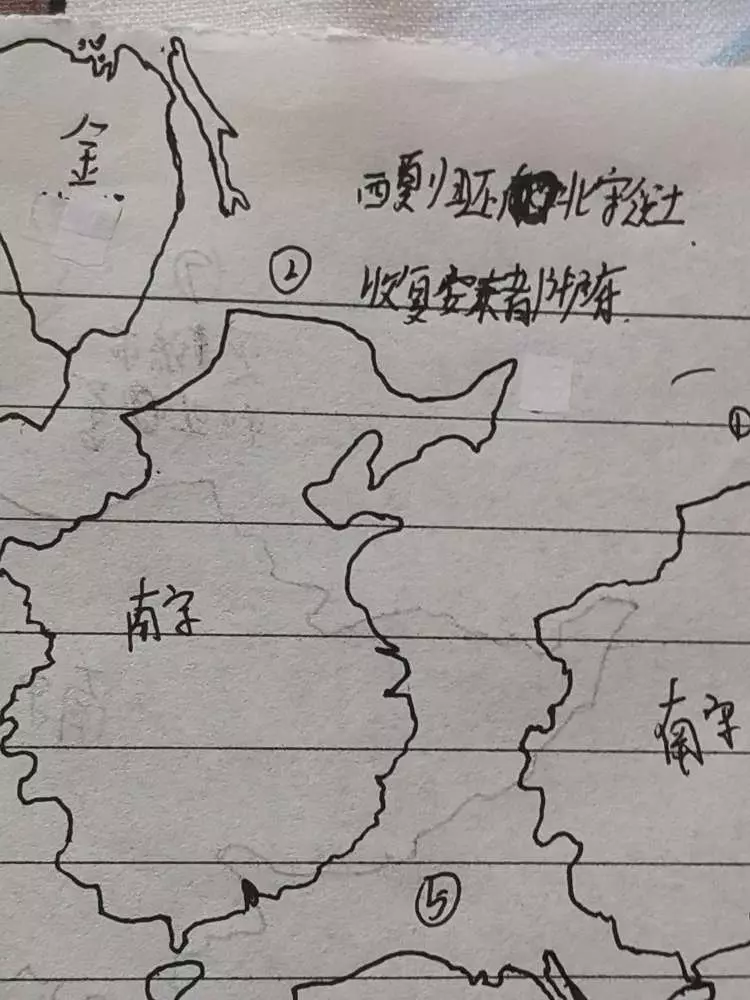 金
西夏归还北宋领土
②
收复安东者
①
南宋
南宋
⑤